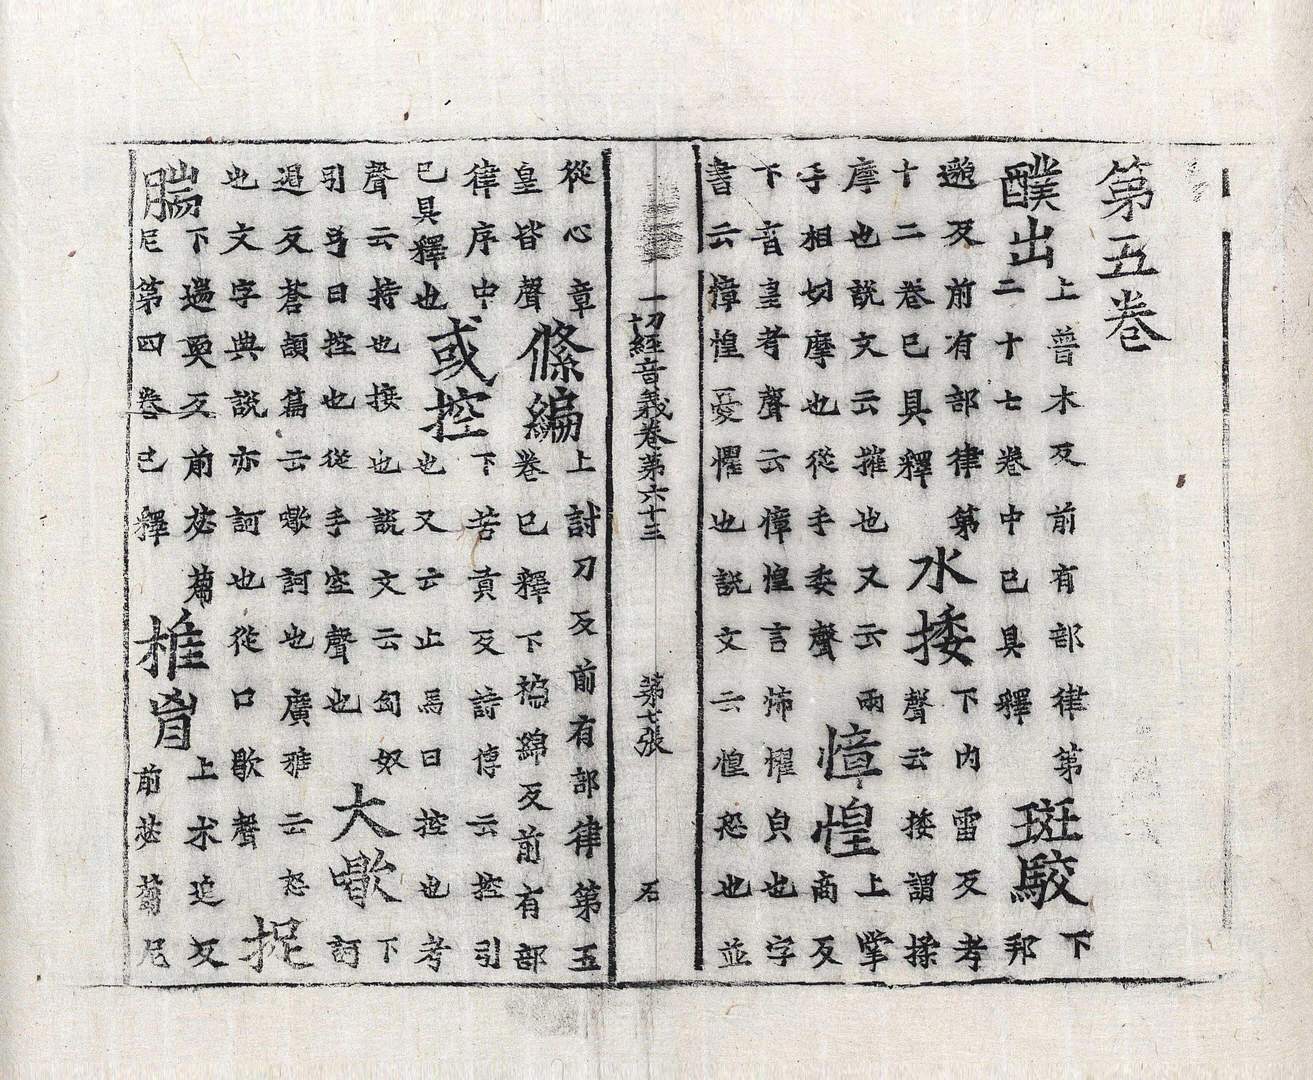 第五卷
醭出上普木反前有部律第二十七卷中已具釋斑駮下邦
邈反前有部律第十二卷已具釋水捼下內雷反考聲云捼謂揉
摩也說文云摧也又云兩手相切摩也從手委聲慞惶上掌商反
下音皇考聲云慞惶言怖懼皃也字書云慞惶憂懼也說文云惶恐也並
一切經音義卷第六十三 第七張 石
從心章皇皆聲絛編上討刀反前有部律第五卷已釋下褊綿反前有部
律序中已具釋也或控下苦貢反詩傳云控引也又云止馬曰控也考
聲云持也接也說文云匈奴引弓曰控也從手空聲也大下訶
遏反蒼頡篇云訶也廣雅云怒也文字典說亦訶也從口歇聲捉
腨下遄耎反前苾蒭尼第四卷已釋椎胷上朮追反前苾蒭尼